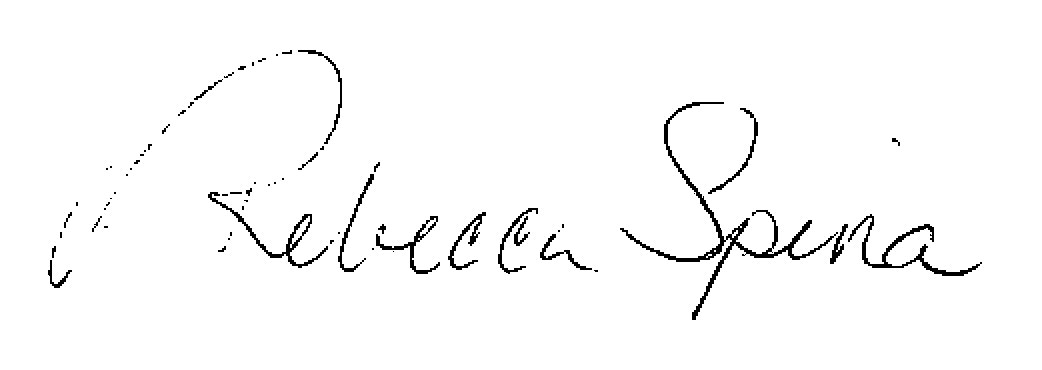 Rebecca Spina